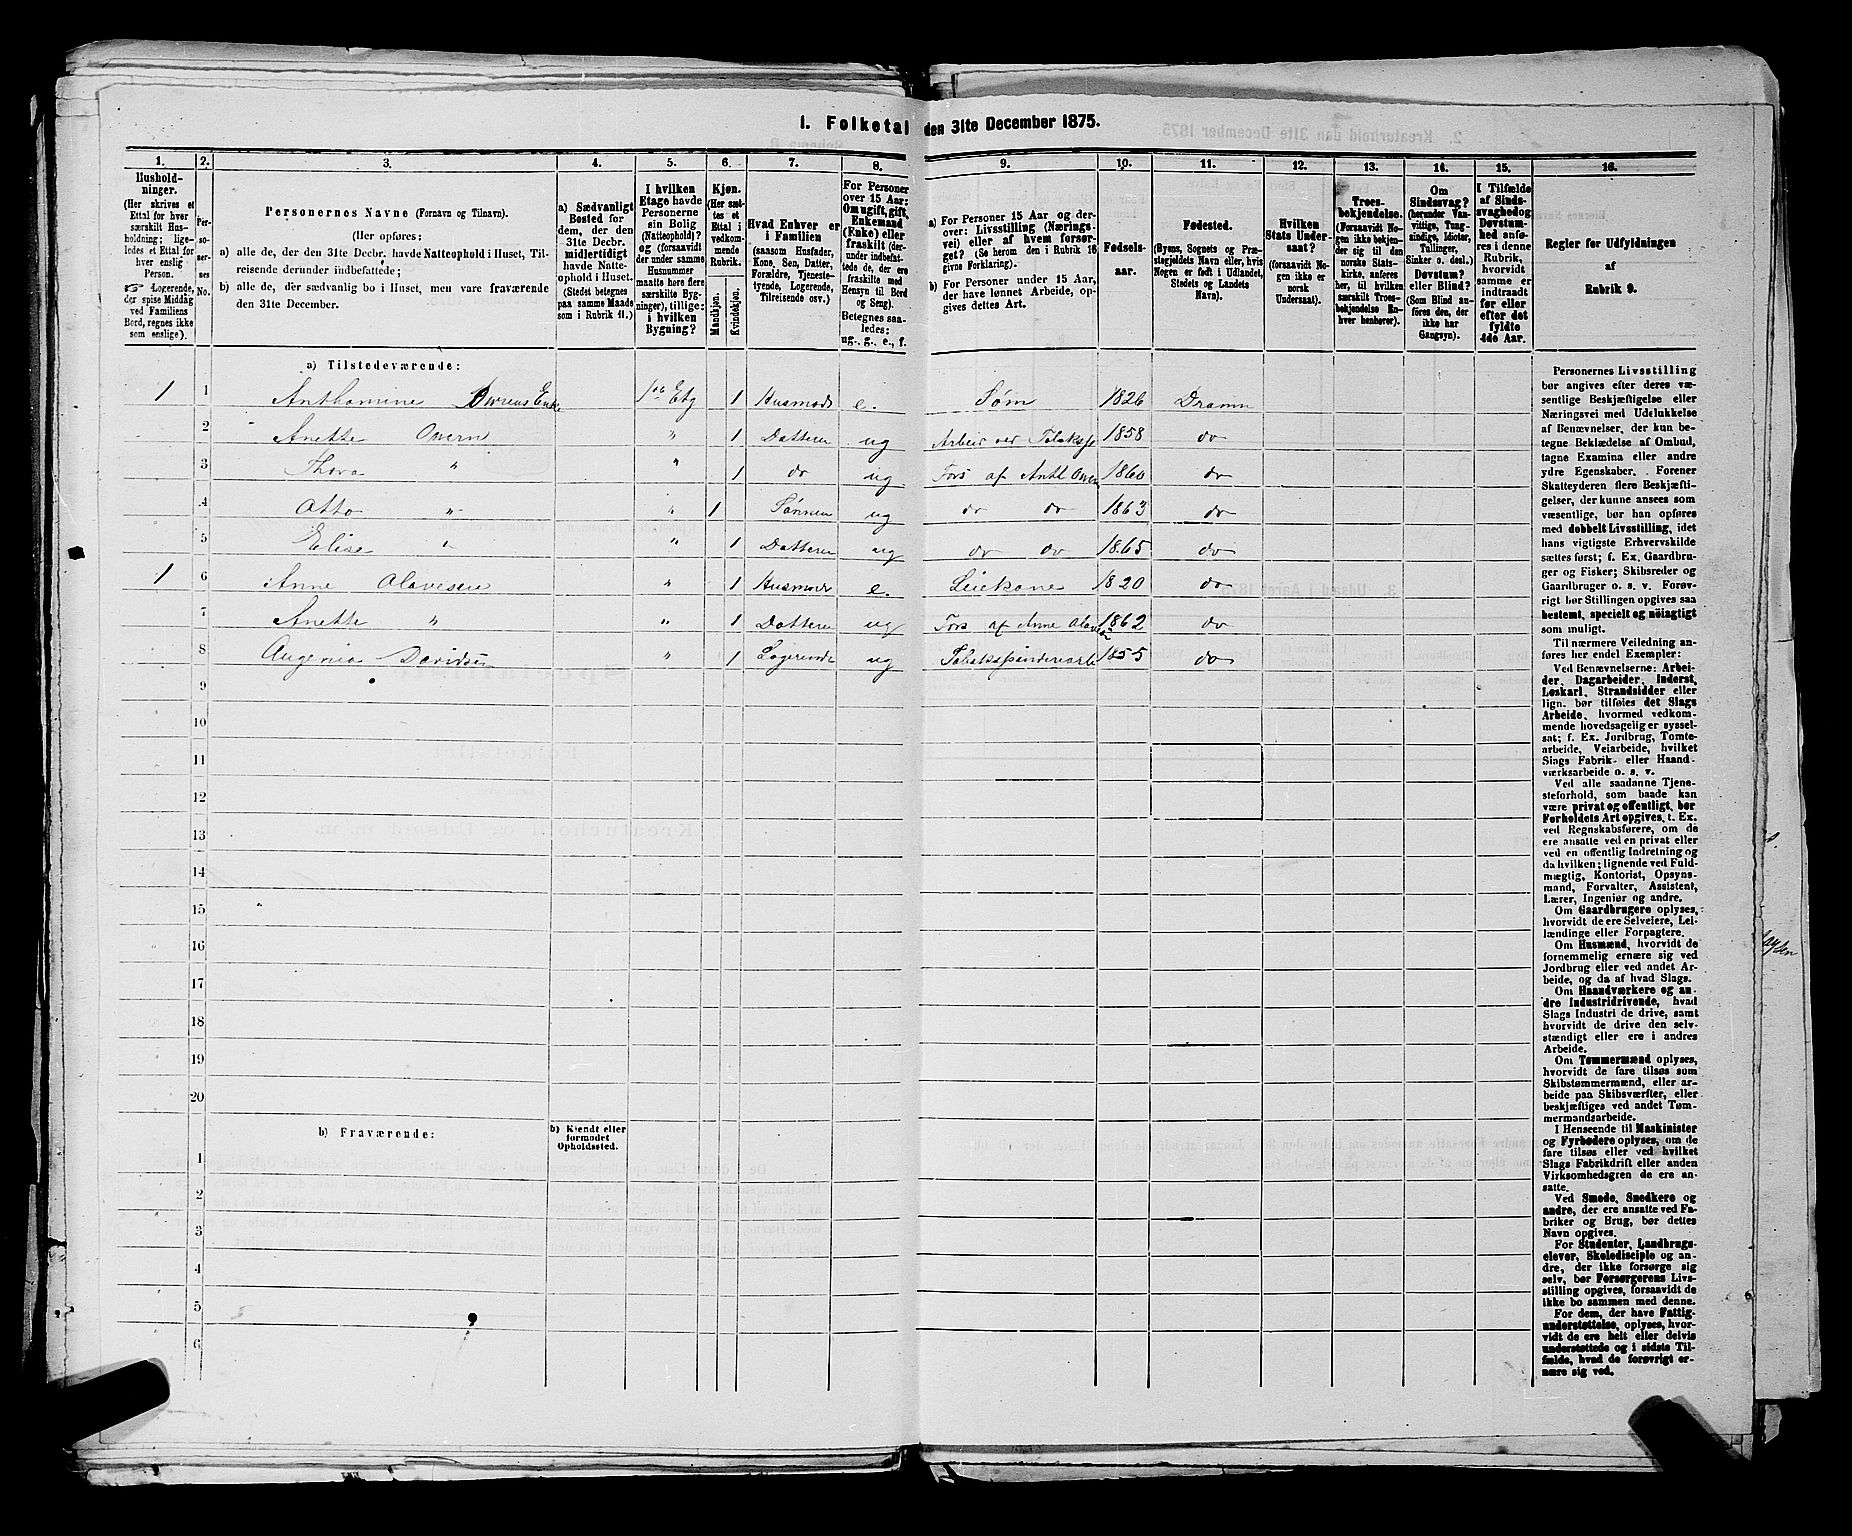 1. Folketal den 31te December 1875.
1. 2. 3. 4. 5. 6. 7. 8. 9. 10. 11. 12. 13. 14. 15. 16.
Husholdninger.
(Her skrives et
Ettal for hver
særskilt Husholdning;
ligeledes et Ettal for
hver enslig
Person.
Logerende,
der spise Middag
ved Familiens
Bord, regnes ikke
som enslige).
Personernes No.
Personernes Navne (Fornavn og Tilnavn).
(Her opføres:
a) alle de, der den 31te Decbr. havde Natteophold i Huset, Tilreisende
derunder indbefattede;
b) alle de, der sædvanlig bo i Huset, men vare fraværende
den 31te December.
a) Sædvanligt
Bosted for
dem, der den
31te Decbr.
midlertidigt
havde Natteophold
i Huset.
(Stedet betegnes
paa samme Maade
som i Rubrik 11.)
I hvilken
Etage havde
Personerne
sin Bolig
(Natteophold)?
og (forsaavidt
der under samme
Husnummer
maatte høre flere
særskilte Bygninger),
tillige:
i hvilken
Bygning?
Kjøn.
(Her sættes
et
Ettal i
vedkommende
Rubrik.
Mandkjøn.
Kvindekjøn.
Hvad Enhver er
i Familien
(saasom Husfader,
Kone, Søn, Datter,
Forældre, Tjenestetyende,
Logerende,
Tilreisende osv.)
For Personer
over 15 Aar:
Om ugift, gift,
Enkemand
(Enke) eller
fraskilt (derunder
indbefattede
de, der ere
fraskilte med
Hensyn til Bord
og Seng).
Betegnes saaledes:
ug., g., e., f.
a) For Personer 15 Aar og derover:
Livsstilling (Næringsvei)
eller af hvem forsørget?
(Se herom den i Rubrik 16
givne Forklaring).
b) For Personer under 15 Aar,
der have lønnet Arbeide, opgives
dettes Art.
Fødselsaar.
Fødested.
(Byens, Sognets og Præstegjeldets
Navn eller, hvis
Nogen er født i Udlandet,
Stedets og Landets
Navn).
Hvilken
Stats Undersaat?
(forsaavidt Nogen
ikke er
norsk
Undersaat).
Troesbekjendelse.
(Forsaavidt Nogen
ikke bekjender
sig til den
norske Statskirke,
anføres
her, til hvilken
særskilt Troesbekjendelse
Enhver
henhører).
Om
Sindssvag?
(herunder Vanvittige,
Tungsindige,
Idioter,
Tullinger,
Sinker o. desl.)
Døvstum?
eller Blind?
(Som Blind anføres
den, der
ikke har
Gangsyn).
I Tilfælde
af Sindssvaghed
og
Døvstumhed
anføres
i denne
Rubrik,
hvorvidt
samme er
indtraadt
før eller
efter det
fyldte
4de Aar.
Regler for Udfyldningen
af
Rubrik 9.
a) Tilstedeværende:
1 1 Anthomine Enke 1ste Etg 1 Husmodr e. Søm 1826 Dramn
2 Anette Overn " 1 Datteren ug Arbeid ved 1858 do
3 Thora " " 1 do ug Fors af Anth Overn 1860 do
4 Otto " " 1 Sønnen ug do do 1863 do
5 Elise " " 1 Datteren ug do do 1865 do
1 6 Anne Olavesen " 1 Husmodr e. Leiekone 1820 do
7 Anette " " 1 Datteren ug Fors af Anne Olavesen 1862 do
8 Augenia Davidsen " 1 Logerende ug 1855 do
9
10
11
12
13
14
15
16
17
18
19
20
b) Fraværende:
b) Kjendt eller
formodet
Opholdssted.
1
2
3
4
5
6
Personernes Livsstilling
bør angives efter deres væsentlige
Beskjæftigelse eller
Næringsvei med Udelukkelse
af Benævnelser, der kun betegne
Beklædelse af Ombud,
tagne Examina eller andre
ydre Egenskaber. Forener
Skatteyderen flere Beskjæftigelser,
der kunne ansees som
væsentlige, bør han opføres
med dobbelt Livsstilling, idet
hans vigtigste Erhvervskilde
sættes først; f. Ex. Gaardbruger
og Fisker; Skibsreder og
Gaardbruger o. s. v. Forøvrigt
bør Stillingen opgives saa
bestemt, specielt og nøiagtigt
som muligt.
Til nærmere Veiledning anføres
her endel Exempler:
Ved Benævnelserne: Arbeider,
Dagarbeider, Inderst,
Løskarl, Strandsidder eller
lign. bør tilføies det Slags
Arbeide, hvormed vedkommende
hovedsagelig er sysselsat;
f. Ex. Jordbrug, Tomtearbeide,
Veiarbeide, hvilket
Slags Fabrik- eller Haandværksarbeide
o. s. v.
Ved alle saadanne Tjenesteforhold,
som baade kan
være privat og offentligt, bør
Forholdets Art opgives, t. Ex.
ved Regnskabsførere, om de
ere ansatte ved en privat eller
ved en offentlig Indretning og
da hvilken; lignende ved Fuldmægtig,
Kontorist, Opsynsmand,
Forvalter, Assistent,
Lærer, Ingeniør og andre.
Om Gaardbrugere oplyses,
hvorvidt de ere Selveiere, Leilændinge
eller Forpagtere.
Om Husmænd, hvorvidt de
fornemmelig ernære sig ved
Jordbrug eller ved andet Arbeide,
og da af hvad Slags.
Om Haandværkere og andre
Industridrivende, hvad
Slags Industri de drive, samt
hvorvidt de drive den selvstændigt
eller ere i andres
Arbeide.
Om Tømmermænd oplyses,
hvorvidt de fare tilsøs som
Skibstømmermænd, eller arbeide
paa Skibsværfter, eller
beskjæftiges ved andet Tømmermandsarbeide.
I Henseende til Maskinister
og Fyrbødere oplyses, om de
fare tilsøs eller ved hvilket
Slags Fabrikdrift eller anden
Virksomhedsgren de ere ansatte.
Ved Smede, Snedkere og
andre, der ere ansatte ved Fabriker
og Brug, bør dettes
Navn opgives.
For Studenter, Landbrugselever,
Skoledisciple og andre,
der ikke forsørge sig
selv, bør Forsørgerens Livsstilling
opgives, forsaavidt de
ikke bo sammen med denne.
For dem, der have Fattigunderstøttelse,
oplyses, hvorvidt
de ere helt eller delvis
understøttede og i sidste Tilfælde,
hvad de forøvrigt ernære
sig ved.